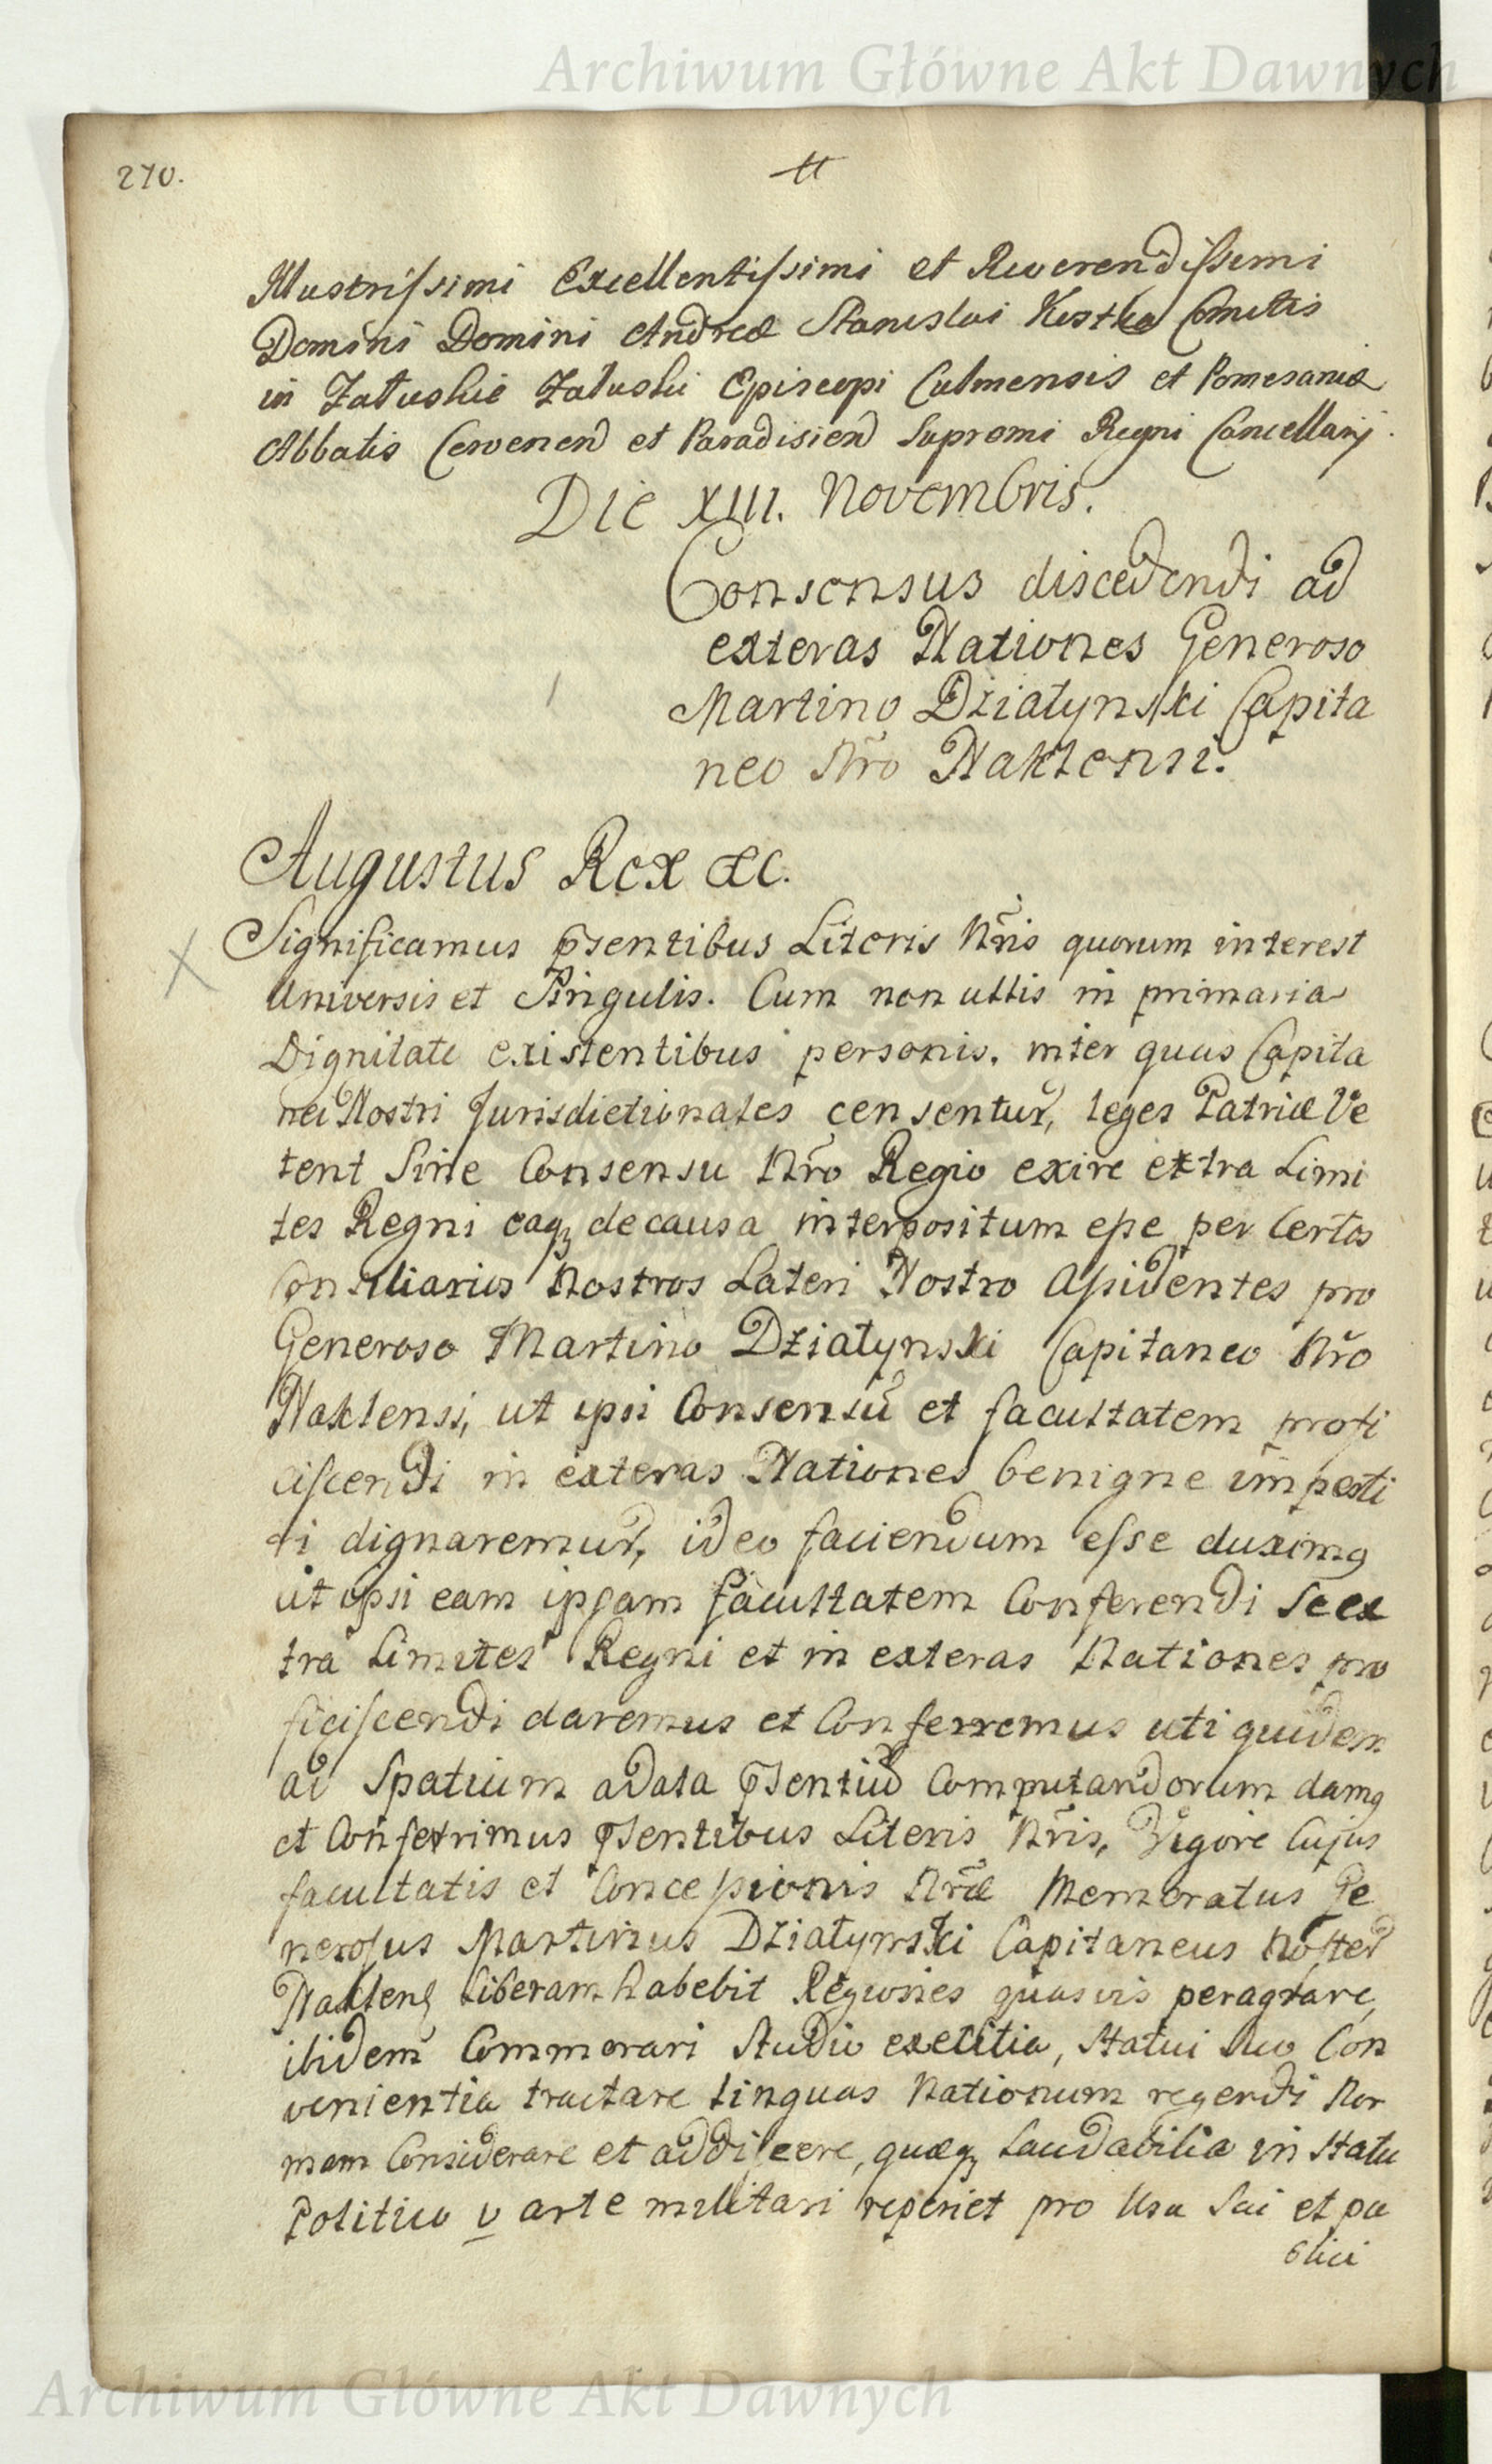 Archiwum Główne Akt Dawnych
270.
Illustrissimi Excellentissimi et Reverendissimi
Domini Domini Andreæ Stanislai Kostka Comitis
in Załuskie Załuski Episcopi Culmensis et Pomesaniæ
Abbatis Cervenen et Paradisien Supremi Regni Cancellarij.
Die XIII. Novembris.
Consensus discedendi ad
exteras Nationes Generoso
Martino Działynski Capita
neo Nr̃o Nakłensi.
Augustus Rex &c.
Significamus p̃sentibus Literis Nr̃is quorum interest
Universis et Singulis. Cum non ullis in primaria
Dignitate existentibus personis, inter quas Capita
nei Nostri Jurisdictionales censentur, leges Patriæ Ve
tent Sine Consensu Nr̃o Regio exire extra Limi
tes Regni eaq; de causa interpositum esse per Certos
Consiliarios Nostros Lateri Nostro Assidentes pro
Generoso Martino Działynski Capitaneo Nr̃o
Nakłensi, ut ipsi Consensũ et facultatem profi
ciscendi in exteras Nationes benigne impesti
ri dignaremur, ideo faciendum esse duximq
ut ipsi eam ipsam facultatem Conferendi Se ex
tra Limites Regni et in exteras Nationes pro
ficiscendi daremus et Conferremus uti quidem
ad Spatium a data p̃sentiu Computandorum damq
et Conferrimus p̃sentibus Literis Nr̃is, Vigore Cujus
facultatis et Concessionis Nr̃æ Memoratus Ge
nerosus Martinus Działynski Capitaneus Noster
Nakłens liberam habebit Regiones quasvis peragrare,
ibidem Commorari Studio exetitia, Statui Suo Con
venientia tractare linguas Nationum regendi Nor
mam Considerare et addiscere, quæq; Laudabilia in Statu
Politico v arte militari reperiet pro Usu Sui et pu
blici
Archiwum Główne Akt Dawnych